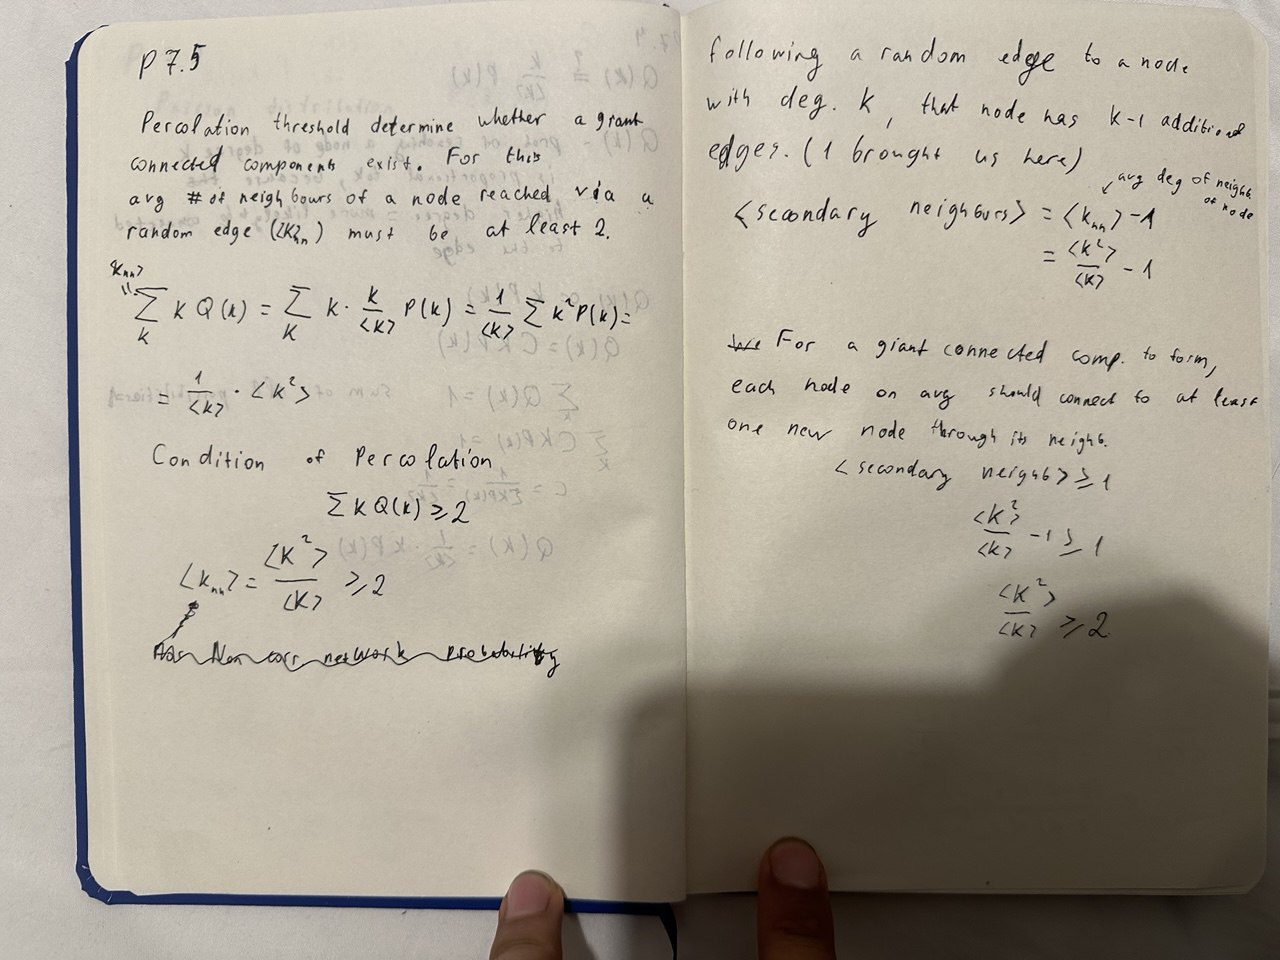 P 7.5
Percolation threshold determine whether a giant
connected components exist. For this
avg # of neighbours of a node reached via a
random edge (⟨K⟩nn) must be at least 2.
⟨Knn⟩
"
∑_K K Q(k) = ∑_K K · K/⟨K⟩ P(k) = 1/⟨K⟩ ∑ K² P(k) =
= 1/⟨K⟩ · ⟨K²⟩
Condition of Percolation
∑ K Q(k) ≥ 2
⟨Knn⟩ = ⟨K²⟩/⟨K⟩ ≥ 2
following a random edge to a node
with deg. K, that node has K-1 additional
edges. (1 brought us here)
avg deg of neighb
of node
⟨secondary neighburs⟩ = ⟨Knn⟩ - 1
= ⟨K²⟩/⟨K⟩ - 1
We For a giant connected comp. to form,
each node on avg should connect to at least
one new node through its neighb.
⟨secondary neighb⟩ ≥ 1
⟨K²⟩/⟨K⟩ - 1 ≥ 1
⟨K²⟩/⟨K⟩ ≥ 2